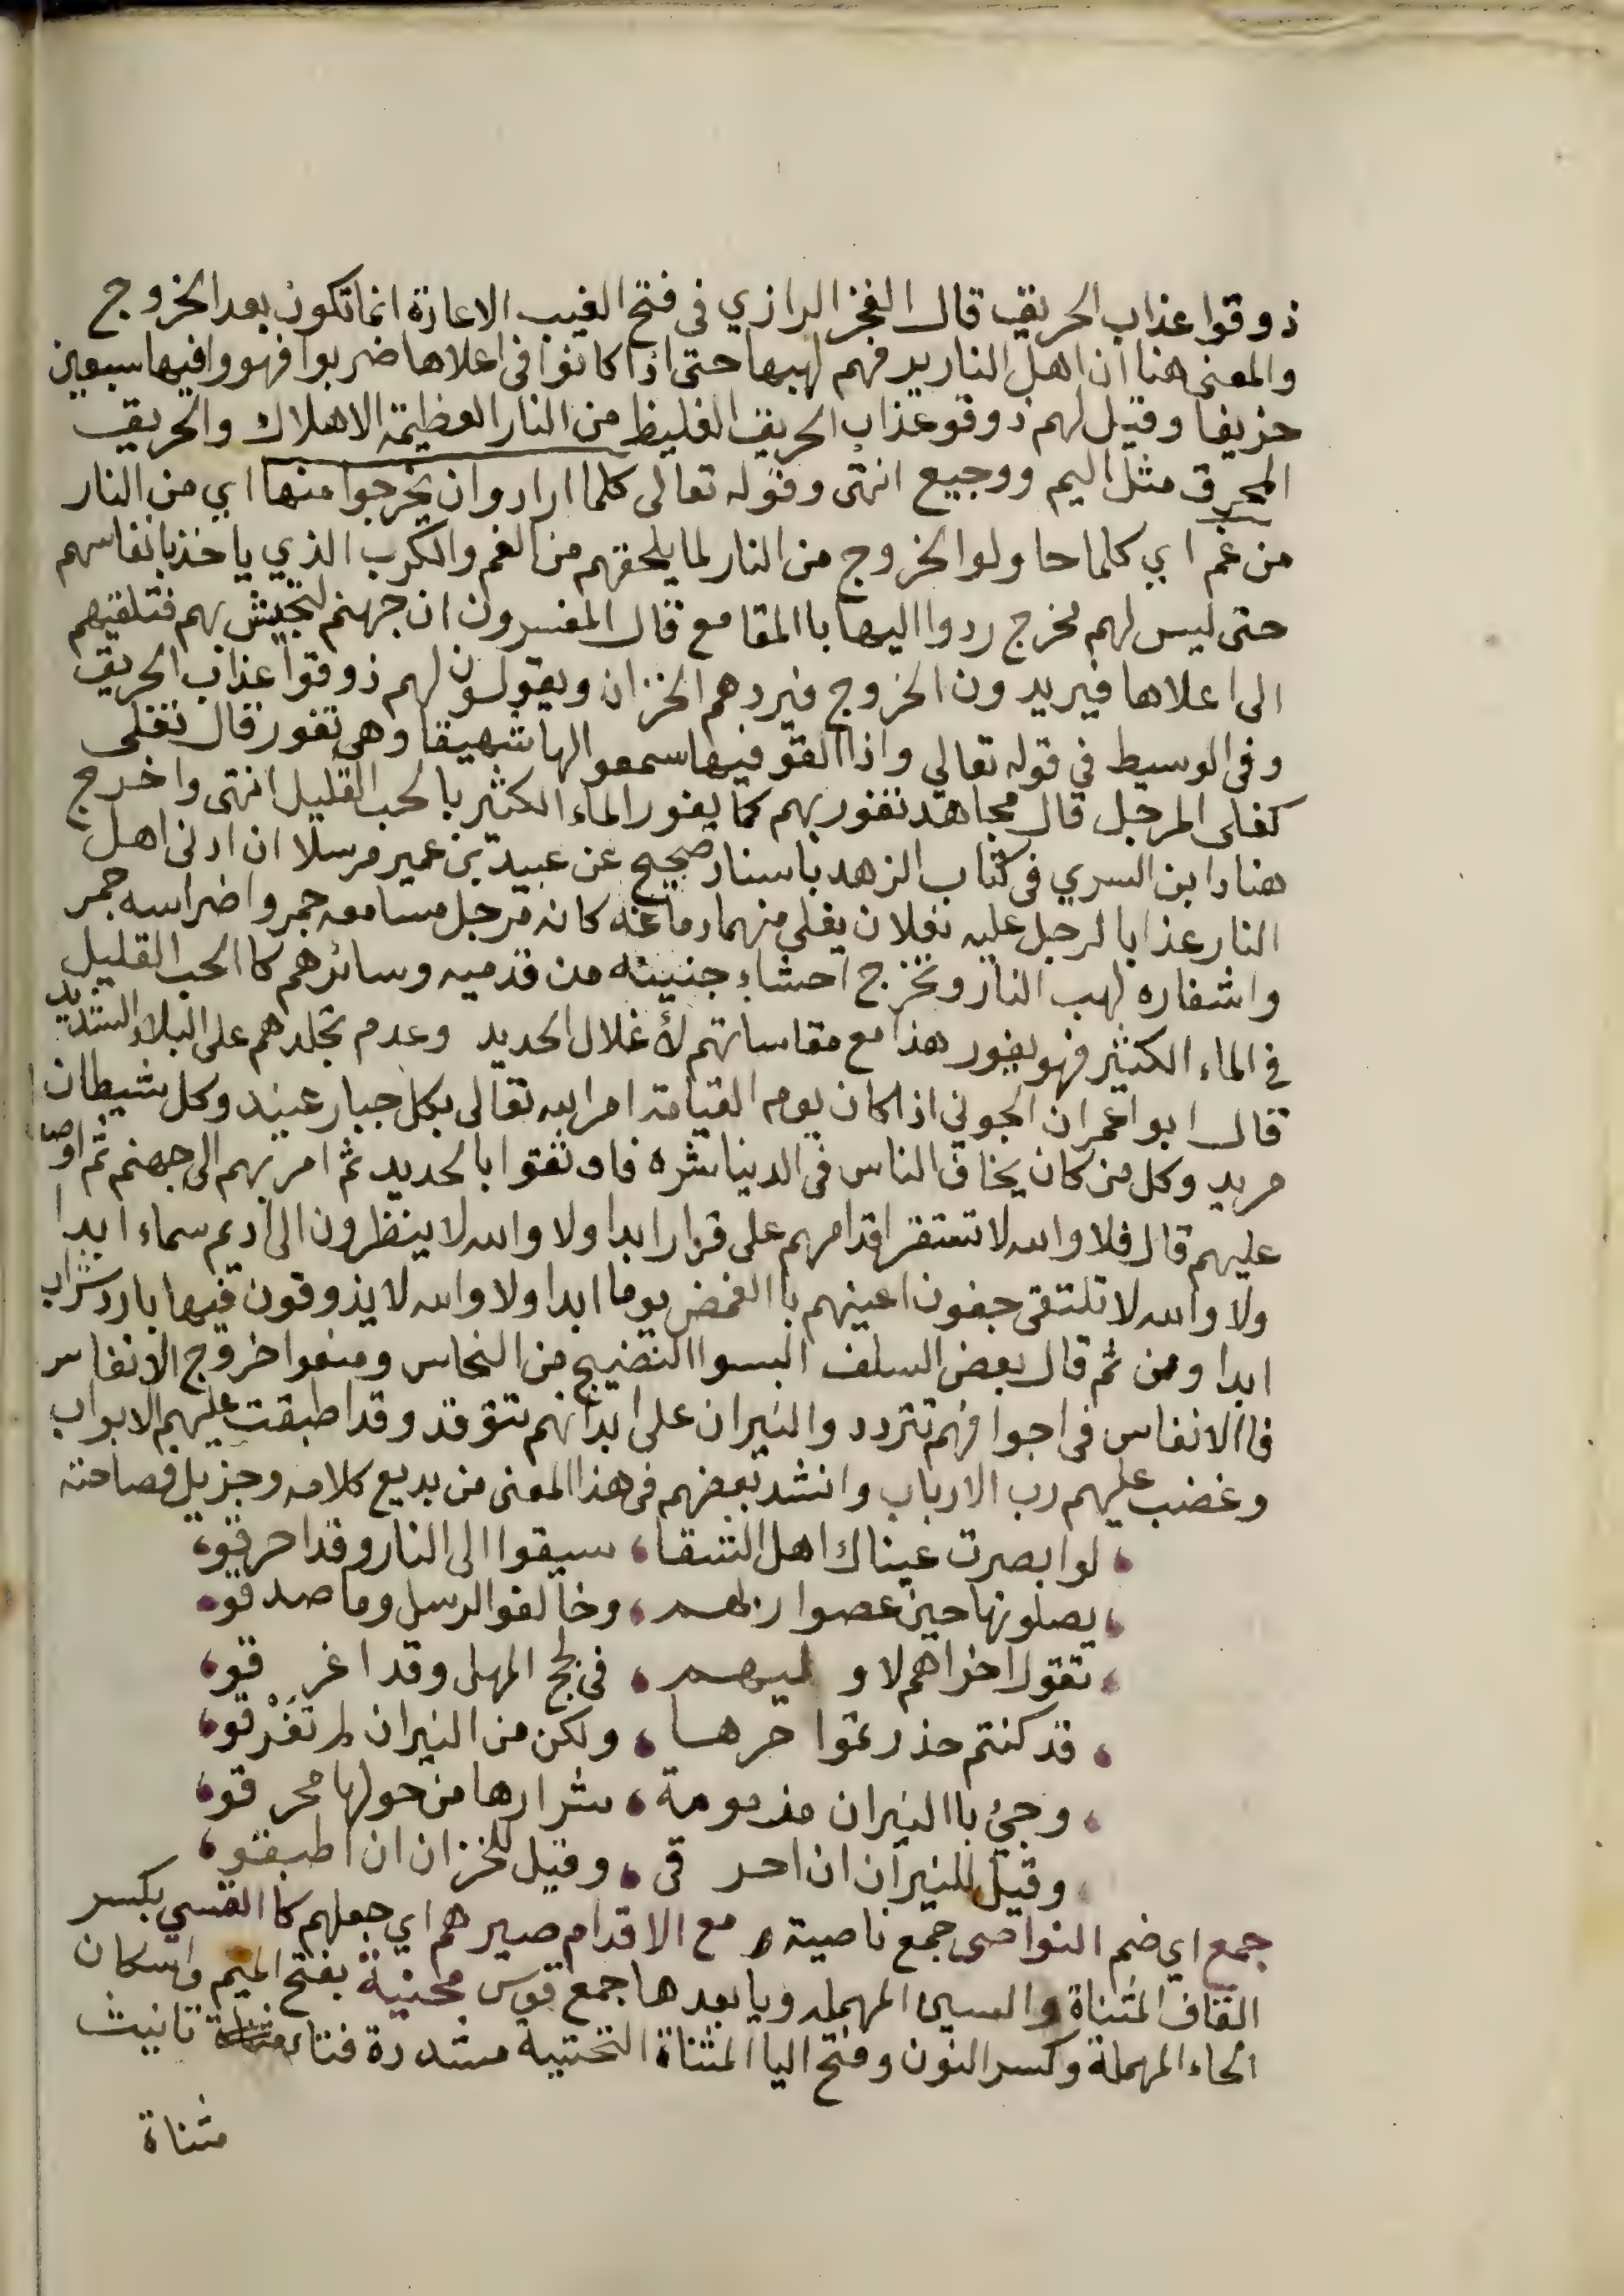 ذوقوا عذاب الحريق قال الفخر الرازي في فتح الغيب الاعادة انما تكون بعد الخروج
والمعنى هنا ان اهل النار يرفهم لهبها حتى اذا كانوا في اعلاها ضربوا فهووا فيها سبعين
خريفا وقيل لهم ذوقو عذاب الحريق الغليظ من النار العظيمة الاهلاك والحريق
المحرق مثل اليم ووجيع انتهى وقوله تعالى كلما ارادوان يخرجوا منها اي من النار
من غم اي كلما حاولوا الخروج من النار لما يلحقهم من الغم والكرب الذي ياخذ بانفاسهم
حتى ليس لهم مخرج ردوا اليها باالمقامع قال المفسرون ان جهنم لتجيش بهم فتلقيهم
الى اعلاها فيريدون الخروج فيردهم الخزان ويقولون لهم ذوقوا عذاب الحريق
وفي الوسيط في قوله تعالي واذا القو فيها سمعوالها شهيقا وهي تفور قال تغلي
كغلى المرجل قال مجاهد تفور بهم كما يفور الماء الكثير بالحب القليل انتهى واخرج
هناد ابن السري في كتاب الزهد باسناد صحيح عن عبيد بن عمير مرسلا ان ادنى اهل
النار عذابا لرجل عليه نعلان يغلي منهما دماغه كانه مرجل مسامعه جمر واضراسه جمر
واشفاره لهب النار وتخرج احشاء جنبيه من قدميه وسائرهم كاالحب القليل
في الماء الكثير فهو يفور هذا مع مقاساتهم لأغلال الحديد وعدم تجلدهم على البلاء الشديد
قال ابوا عمران الجوني اذا كان يوم القيامة امر الله تعالى بكل جبار عنيد وكل شيطان
مريد وكل من كان يخاف الناس في الدنيا شره فاوثقوا بالحديد ثم امر بهم الى جهنم ثم اوصد
عليهم قال فلا والله لا تستقر اقدامهم على قرار ابدا ولا والله لا ينظرون الى اديم سماء ابدا
ولا والله لا تلتقى جفون اعينهم باالغمض يوما ابدا ولا والله لا يذوقون فيها بارد شراب
ابدا ومن ثم قال بعض السلف البسوا النضيج من النحاس ومنعوا خروج الانفاس
فاالانفاس في اجوافهم تتردد والنيران على ابدانهم تتوقد وقد اطبقت عليهم الابواب
وغضب عليهم رب الارباب وانشد بعضهم في هذا المعنى من بديع كلامه وجزيل فصاحته
، لو ابصرت عيناك اهل الشقا ، سيقوا الى النار وقد احرقو ،
، يصلونها حين عصوا ربهم ، وخالفوا الرسل وما صدقو ،
، تقول اخراهم لاوليهم ، في لجج المهل وقد اغرقو ،
، قد كنتم حذرتموا حرها ، ولكن من النيران لم تفرقو ،
، وجئ باالنيران مذمومة ، شرارها من حولها محرقو ،
، وقيل للنيران ان احرقي ، وقيل للخزان ان اطبقو ،
جمع اي ضم النواصى جمع ناصية مع الاقدام صيرهم اي جعلهم كاالقسي بكسر
القاف المثناة والسين المهمله ويا بعدها جمع قوس محنية بفتح الميم واسكان
الحاء المهملة وكسر النون وفتح اليا المثناة التحتية مشددة فتاء تانيث
مثناة